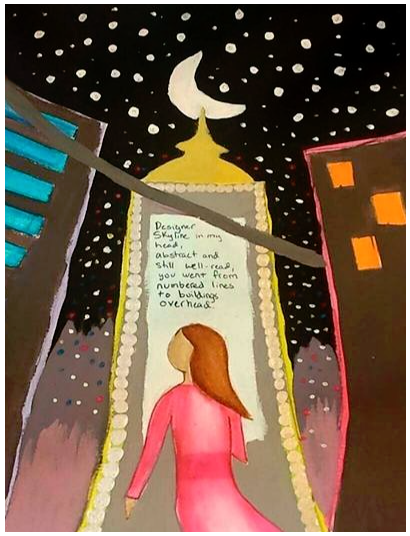 Designer
Skyline in my
head,
abstract and
still well-read,
you went from
numbered lines
to buildings
overhead.